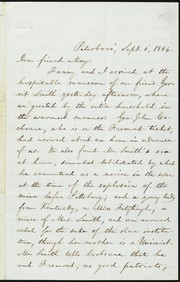 Peterboro', Sept. 6, 1864.
Dear friend May:
Fanny and I arrived at the
hospitable mansion of our friend Ger-
rit Smith yesterday afternoon, where we
are greeted by the entire household in
the warmest manner. Gen. John Co-
chrane, who is on the Fremont ticket,
had arrived about an hour in advance
of us. He and Mr. Smith's son
at home, somewhat debilitated by what
he encountered by his services in the war
at the time of the explosion of the
mine before Petersburg; and a young lady
from Kentucky, a Miss Fitzhugh, a
niece of Mrs. Smith, and an avowed
rebel for the sake of the slave institu-
tion, though her mother is a Unionist.
Mr. Smith tells Cochrane that he
and Fremont, as good patriots,